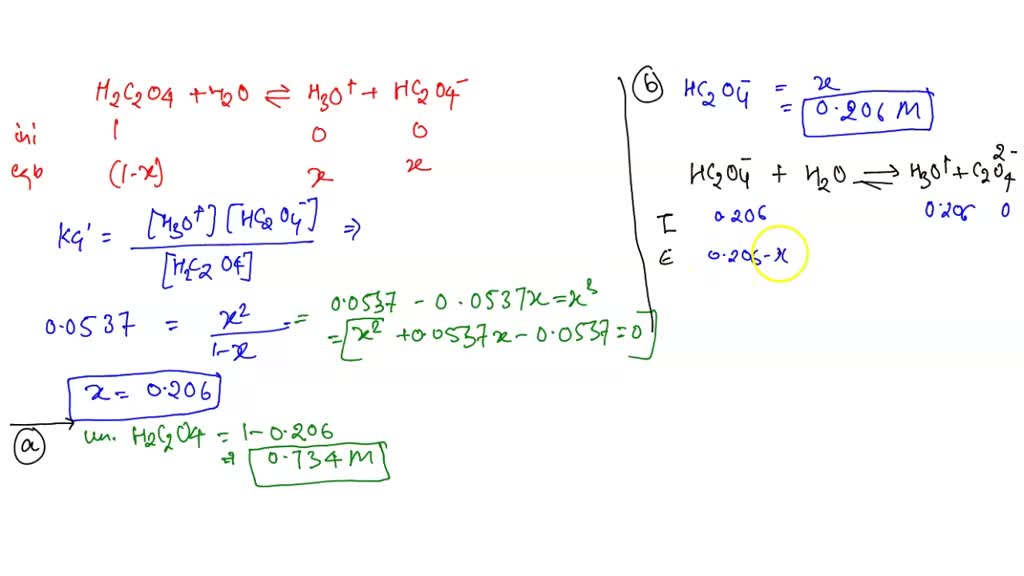 H2C2O4 + H2O ⇌ H3O+ + HC2O4-
ini 1 0 0
eqb (1-x) x x
Ka' = [H3O+] [HC2O4-] / [H2C2O4] ⇒
0.0537 = x2 / 1-x = 0.0537 - 0.0537x = x3
= [x2 + 0.0537x - 0.0537 = 0]
x = 0.206
(a) un. H2C2O4 = 1 - 0.206
⇒ 0.734 M
(b) HC2O4- = x
= 0.206 M
HC2O4- + H2O ⇌ H3O+ + C2O4 2-
I 0.206 0.206 0
E 0.206-x